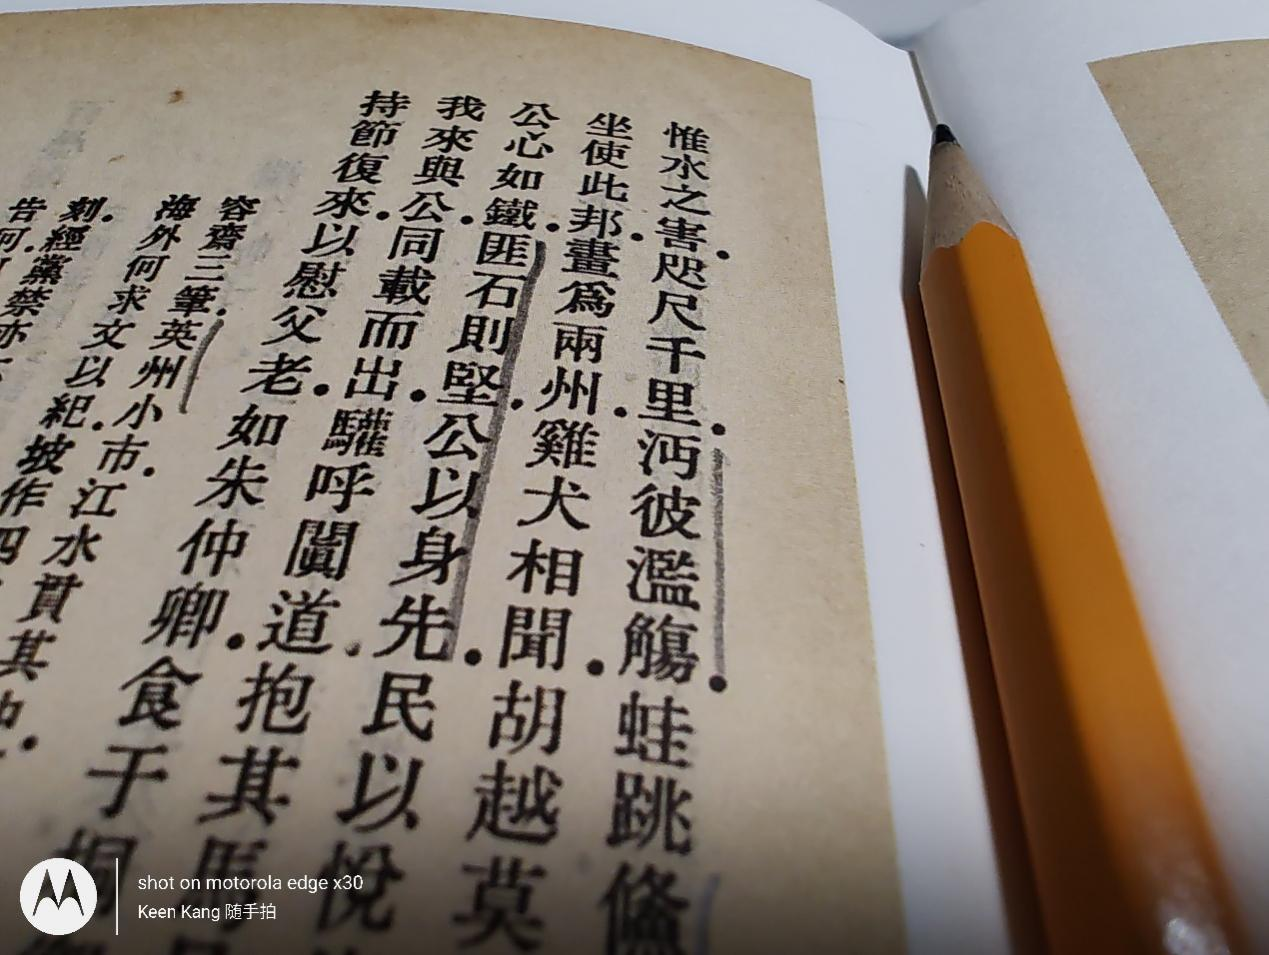 惟水之害咫尺千里沔彼濫觴蛙跳鯈
坐使此邦畫爲兩州雞犬相聞胡越莫
公心如鐵匪石則堅公以身先民以悅
我來與公同載而出驩呼闐道抱其馬
持節復來以慰父老如朱仲卿食于桐
容齋三筆英州小市江水貫其中
海外何求文以紀坡作四
刻經黨禁亦
告何
shot on motorola edge x30
Keen Kang 随手拍